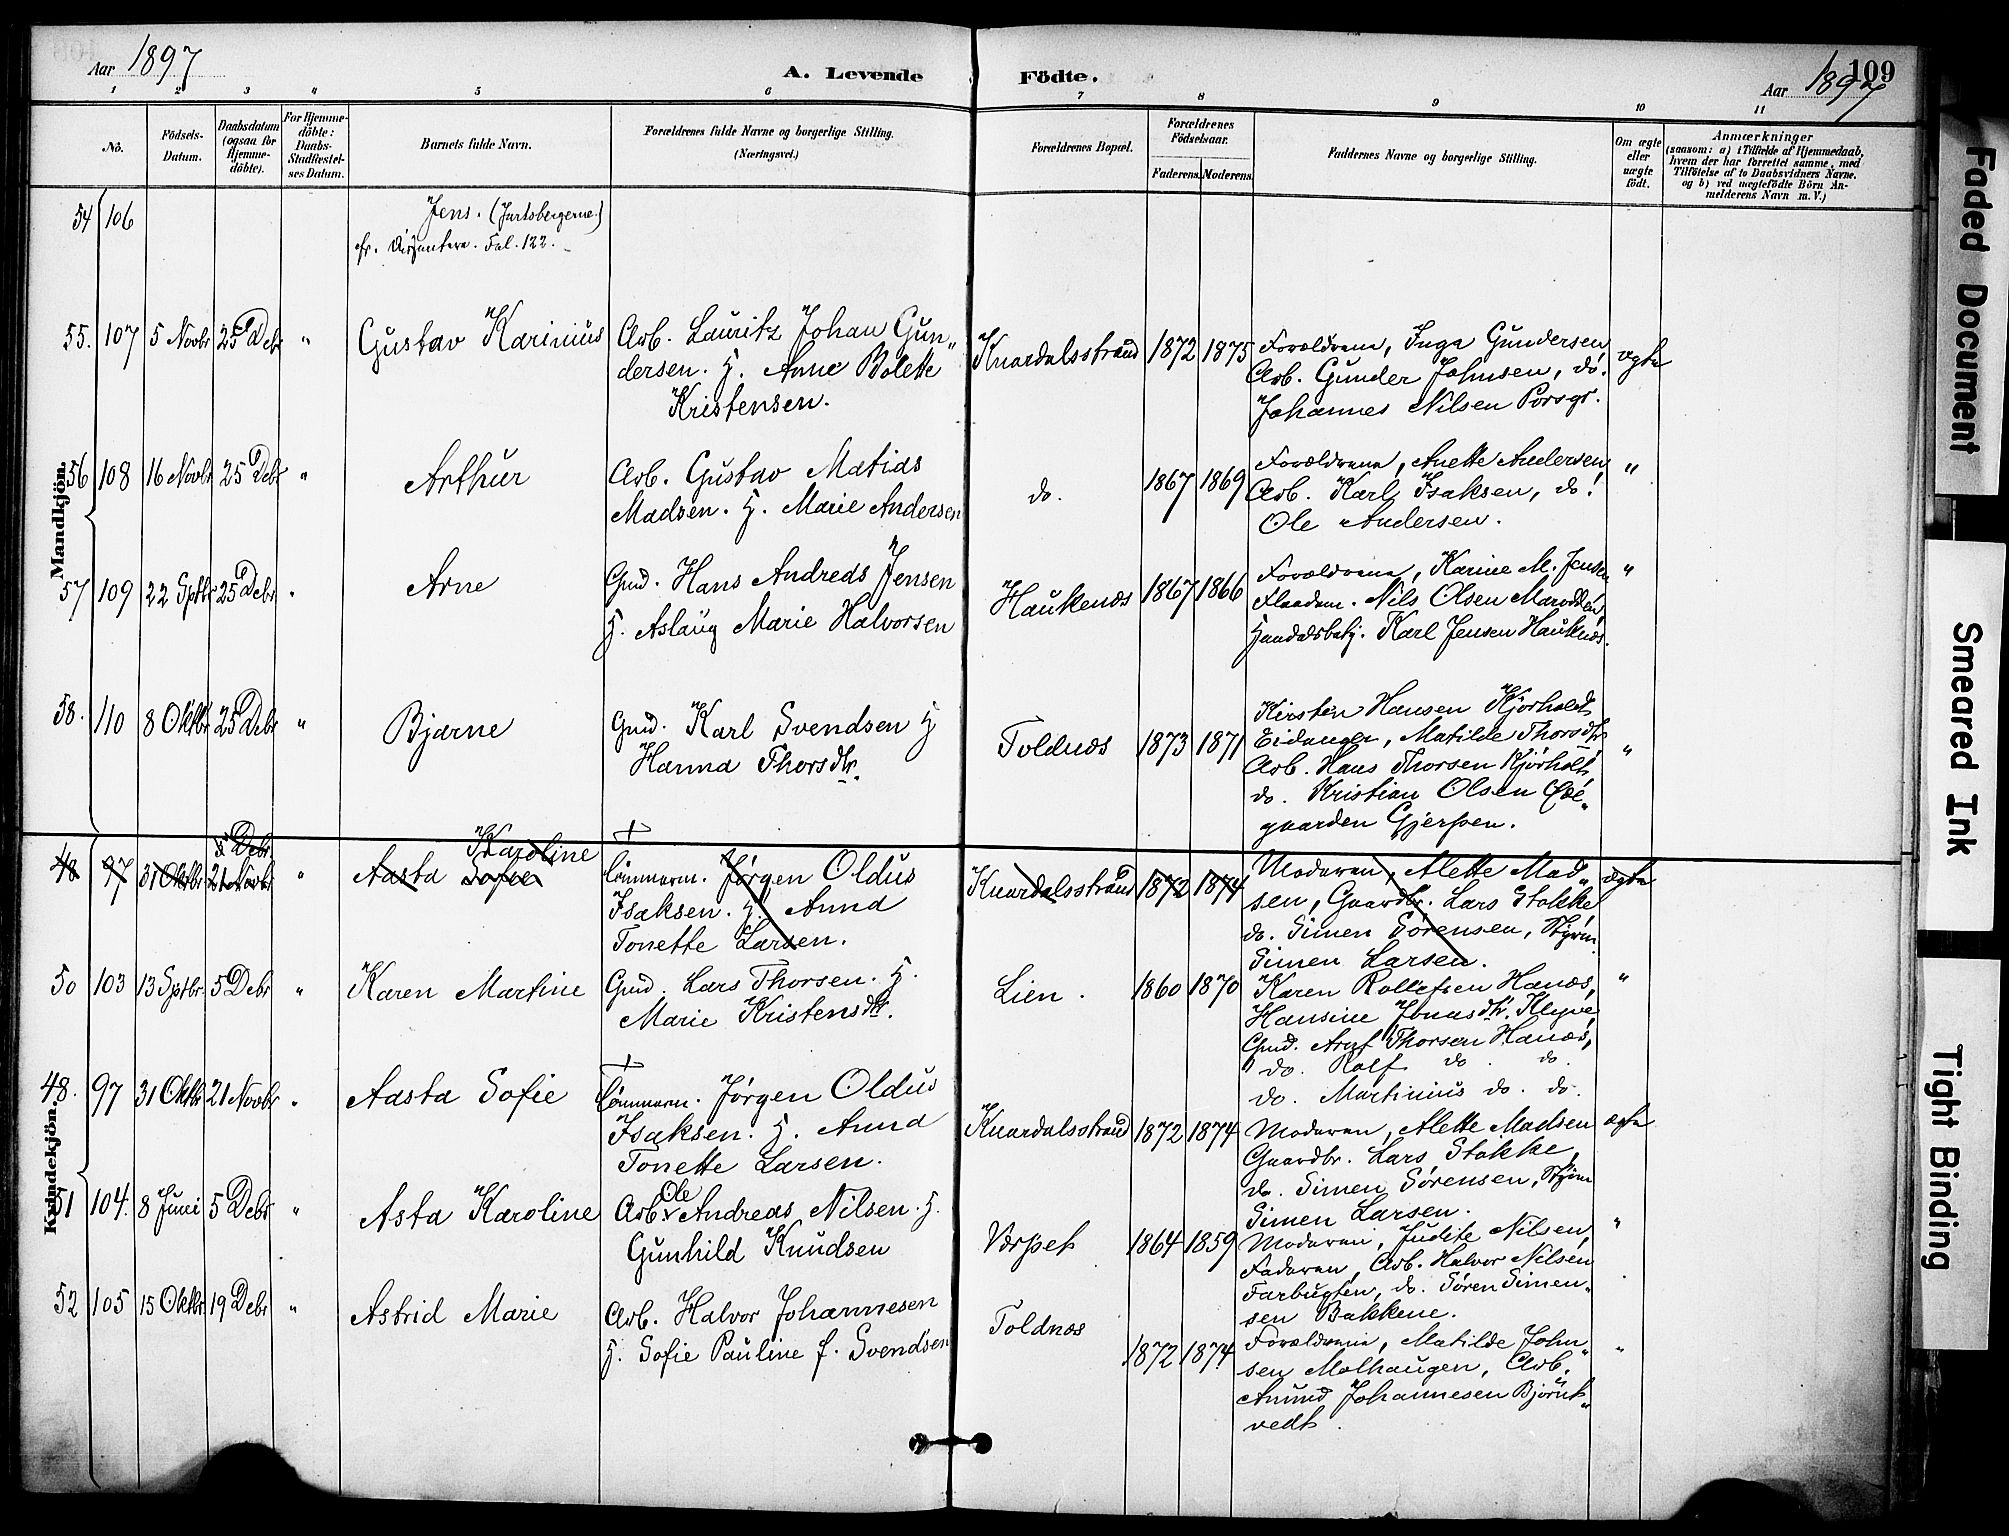 Aar 1897
A. Levende Födte.
Aar 1897
109
1 2 3 4 5 6 7 8 9 10 11
No.
Födsels-
Datum.
Daabsdatum
(ogsaa for
Hjemme-
döbte).
For Hjemme-
döbte:
Daabs-
Stadfæstel-
ses Datum.
Barnets fulde Navn.
Forældrenes fulde Navne og borgerlige Stilling.
(Næringsvei.)
Forældrenes Bopæl.
Forældrenes
Födselsaar.
Faderens. Moderens.
Faddernes Navne og borgerlige Stilling.
Om ægte
eller
uægte
født.
Anmærkninger
(saasom: a) i Tilfælde af Hjemmedaab,
hvem der har forrettet samme, med
Tilföielse af to Daabsvidners Navne.
og b) ved uægtefödte Börn An-
melderens Navn m. V.)
Mandkjön.
54 106
Jens. (Jarlsbergerne.)
fr. Dissentere. Fol. 122.
55. 107 5 Novbr 25 Debr "
Gustav Karinius
Arb. Lauritz Johan Gun„
dersen. H. Anne Bolette
Kristensen.
Knardalsstrand 1872 1875
Forældrene, Inga Gundersen,
Arb. Gunder Johnsen, do.
Johannes Nilsen Porsgr.
ægte
56 108 16 Novbr 25 Debr "
Arthur
Arb. Gustav Matias
Madsen. H. Marie Andersen
do. 1867 1869
Forældrene, Anette Andersen,
Arb. Karl Isaksen, do.
Ole Andersen.
"
57 109 22 Sptbr 25 Debr "
Arne
Gmd. Hans Andreas Jensen
H. Aslaug Marie Halvorsen
Haukenæs 1867 1866
Forældrene, Karine M. Jensen
Nils Olsen
Karl Jensen Hauknæs.
"
58. 110 8 Oktbr 25 Debr "
Bjarne
Gmd. Karl Svendsen H
Hanna Thorsdtr.
Toldnæs 1873 1871
Kirsten Hansen Kjørholt
Eidanger, Matilde Thorsdtr,
Arb. Hans Thorsen Kjørholt,
do. Kristian Olsen
gaarden Gjerpen.
"
Kvindekjön.
48 97 31 Oktbr 21 Novbr 5 Debr "
Aasta Sofie Karoline
Tømmerm. Jørgen Oldus
Isaksen. H. Anna
Tonette Larsen.
Knardalsstrand 1872 1874
Moderen, Alette Mad„
sen, Gaardbr. Lars Stokke
do. Simen Sørensen, Styrm
Simen Larsen.
ægte
50 103 13 Sptbr. 5 Debr "
Karen Martine
Gmd. Lars Thorsen. H.
Marie Kristensdtr.
Lien. 1860 1870
Karen Rollefsen Hanæs,
Hansine Jonasdtr. Klyve,
Gmd. Thorsen Hanæs,
do. Rolf do do.
do. Martinius do. do.
"
48. 97 31 Oktbr 21 Novbr "
Aasta Sofie
Tømmerm. Jørgen Oldus
Isaksen. H. Anna
Tonette Larsen.
Knardalsstrand 1872 1874
Moderen, Alette Madsen
Gaardbr. Lars Stokke,
do. Simen Sørensen, Styrm
Simen Larsen.
ægte
51 104. 8 Juni 5 Debr "
Asta Karoline
Arb. Ole Andreas Nilsen. H.
Gunhild Knudsen
Værpet 1864 1859
Moderen, Judite Nilsen,
Faderen, Arb. Halvor Nilsen
Farbugten, do. Søren Simen„
sen Bakkene.
"
52 105 15 Oktbr. 19 Debr "
Astrid Marie
Arb. Halvor Johannesen
H. Sofie Pauline f. Svendsen
Toldnæs 1872 1874
Forældrene, Matilde John„
sen Molhaugen, Arb.
Anund Johannesen Bjørnt„
vedt.
"
Faded Document
Smeared Ink
Tight Binding